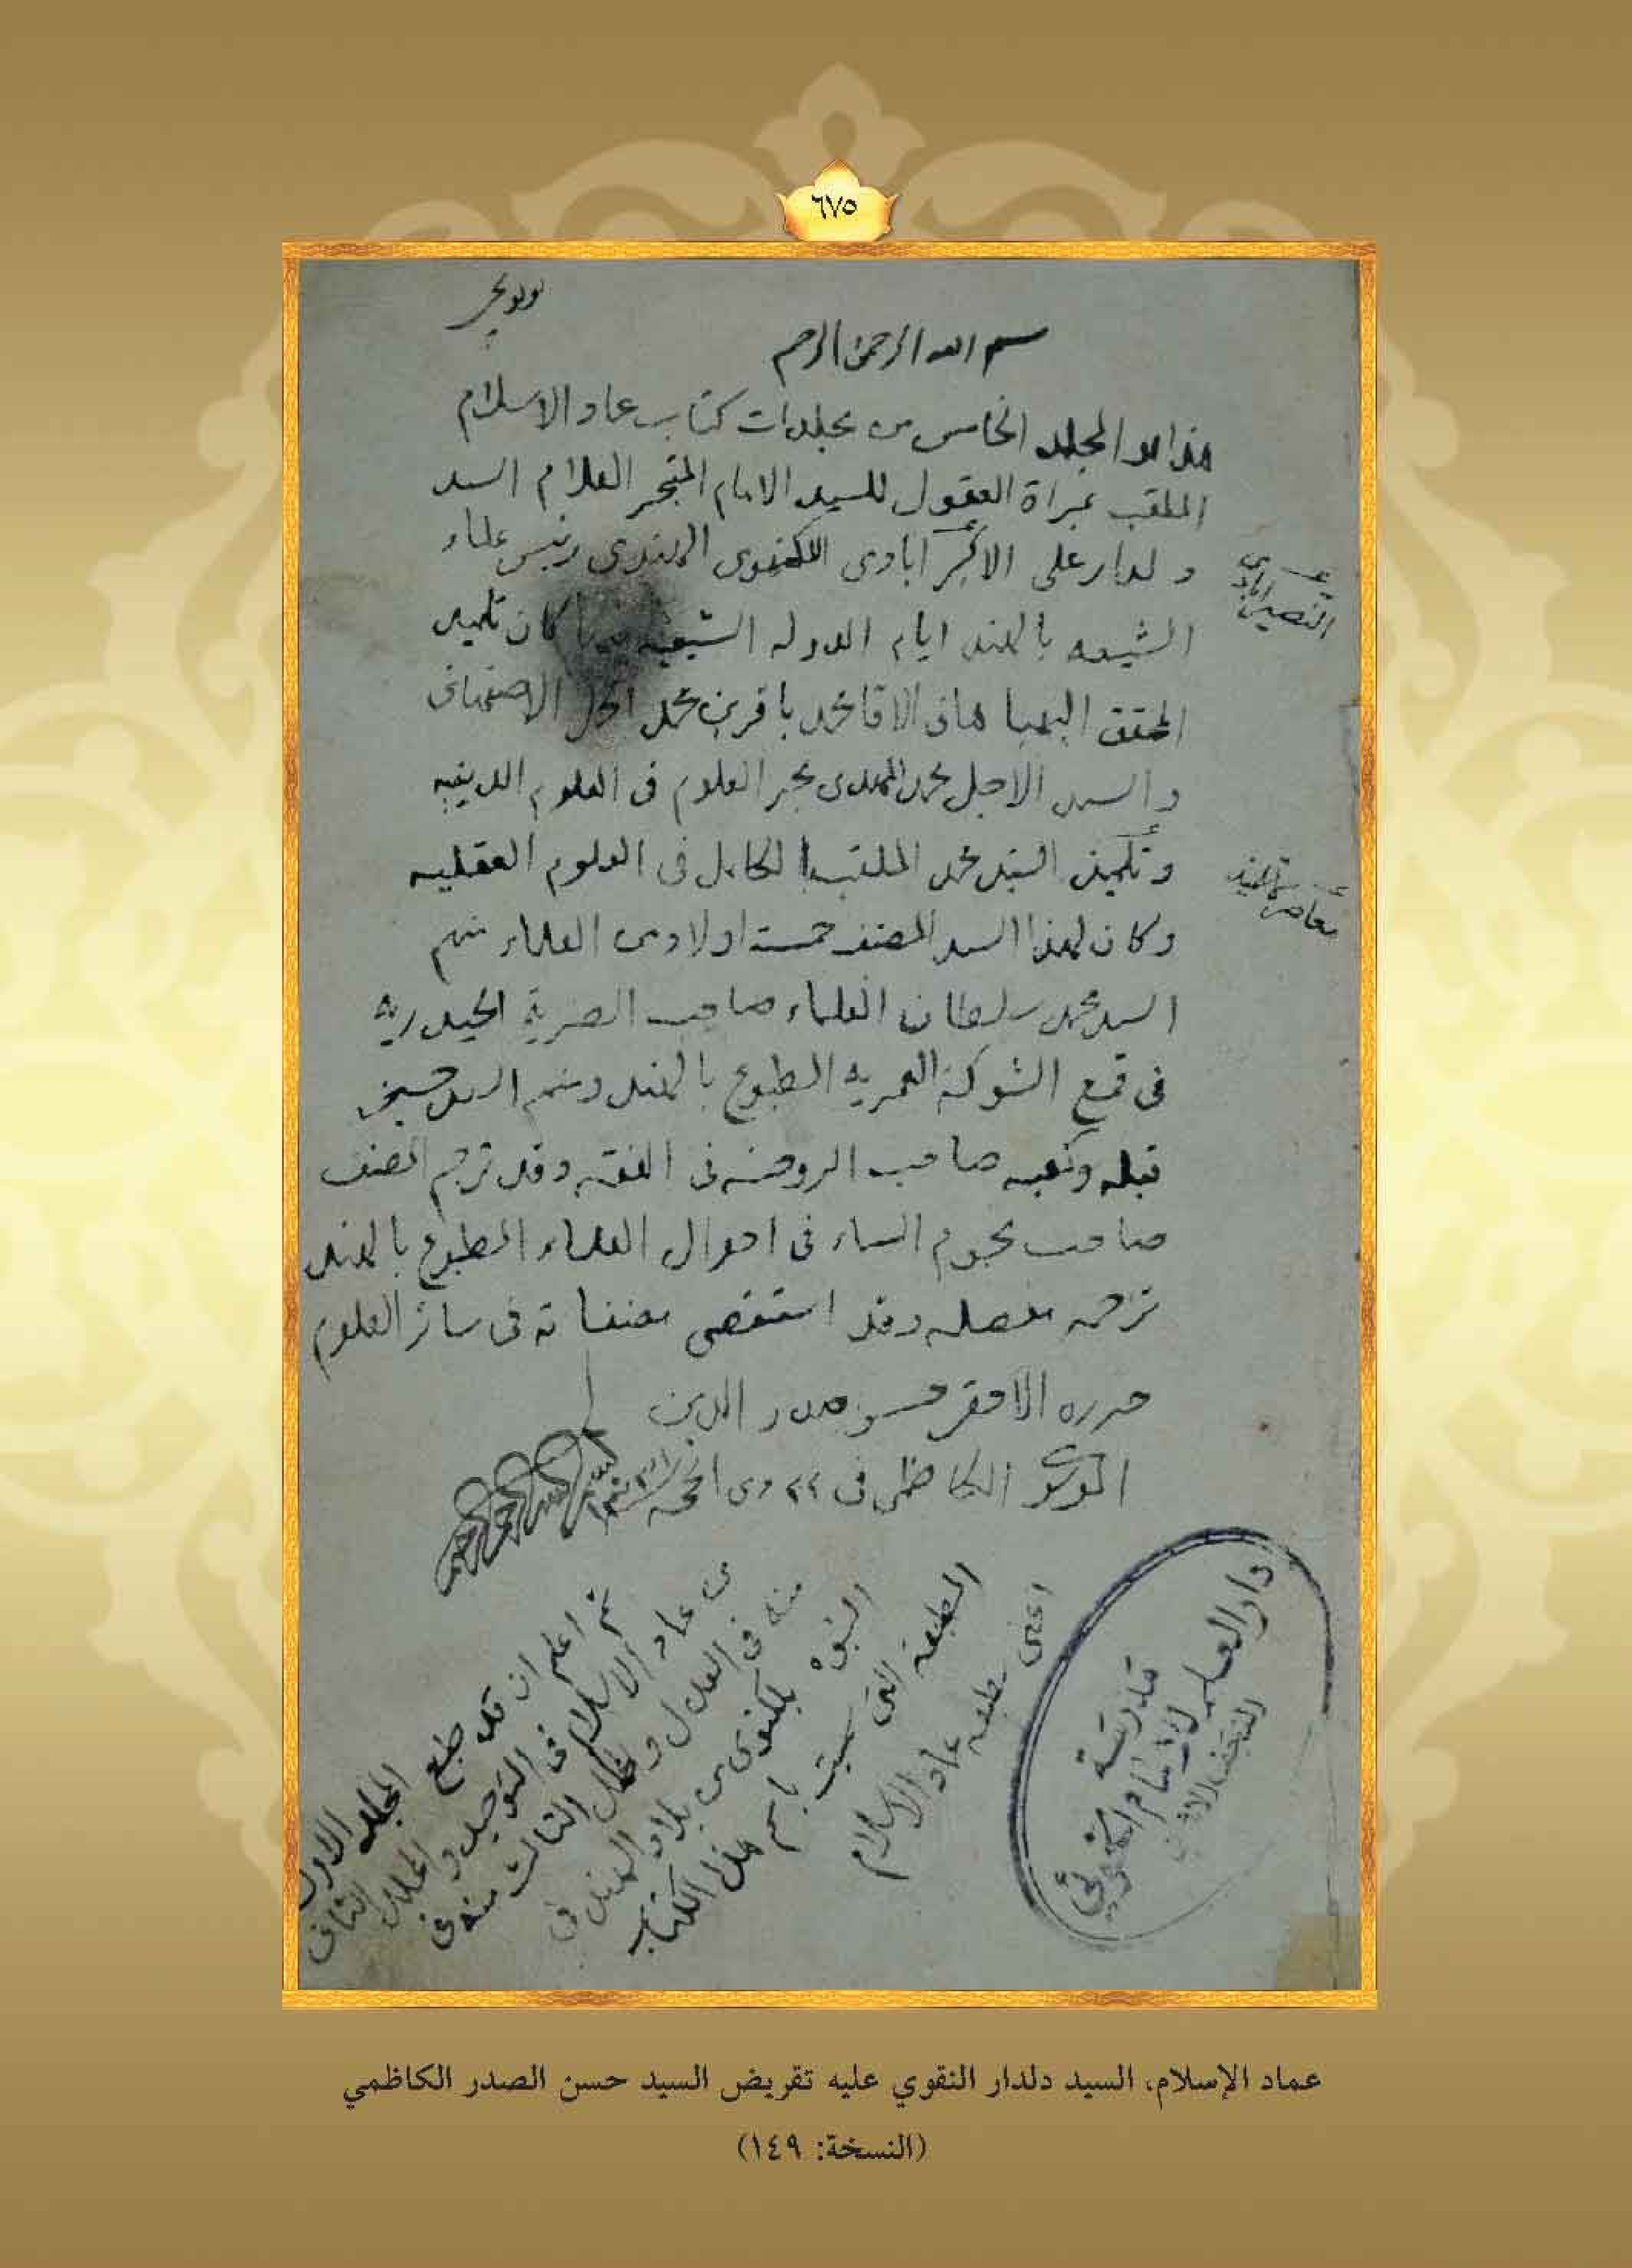 ٦٧٥
بسم الله الرحمن الرحيم
هذا هو المجلد الخامس من مجلدات كتاب عماد الاسلام
الملقب بمراة العقول للسيد الامام المتبحر العلام السيد
دلدار على الاكبر ابادى اللكنهوى الهندى رئيس علماء
النصيرابادى
الشيعه بالهند ايام الدوله الشيعيه كان تلميد
المحقق البهبهانى الاقا محمد باقر بن محمد اكمل الاصفهانى
والسيد الاجل محمد المهدى بحر العلوم فى العلوم الدينيه
وتلميذ السيد محمد الملقب بالكامل فى العلوم العقليه
معاصر تلميذ
وكان لهذا السيد المصنف خمسة اولاد من العلماء منهم
السيد محمد سلطان العلماء صاحب الضربة الحيدريه
فى قمع الشوكة العمريه المطبوع بالهند ومنهم السيد حسين
قبله وكعبه صاحب الروضه فى الفقه وقد ترجم المصنف
صاحب نجوم السماء فى احوال العلماء المطبوع بالهند
ترجمه مفصله وقد استقصى مصنفاته فى سائر العلوم
حرره الاحقر حسن صدر الدين
الموسوى الكاظمى فى ٢٢ ذى الحجه
ثم اعلم ان قد طبع المجلد الاول
من عماد الاسلام فى التوحيد والمجلد الثانى
منه فى العدل والمجلد الثالث منه فى
النبوه بلكنهوى من بلاد الهند فى
المطبعة التى سميت باسم هذا الكتاب
اعنى مطبعه عماد الاسلام
مدرسة
دار العلم للإمام الخوئي
النجف الاشرف
عماد الإسلام، السيد دلدار النقوي عليه تقريض السيد حسن الصدر الكاظمي
(النسخة: ١٤٩)